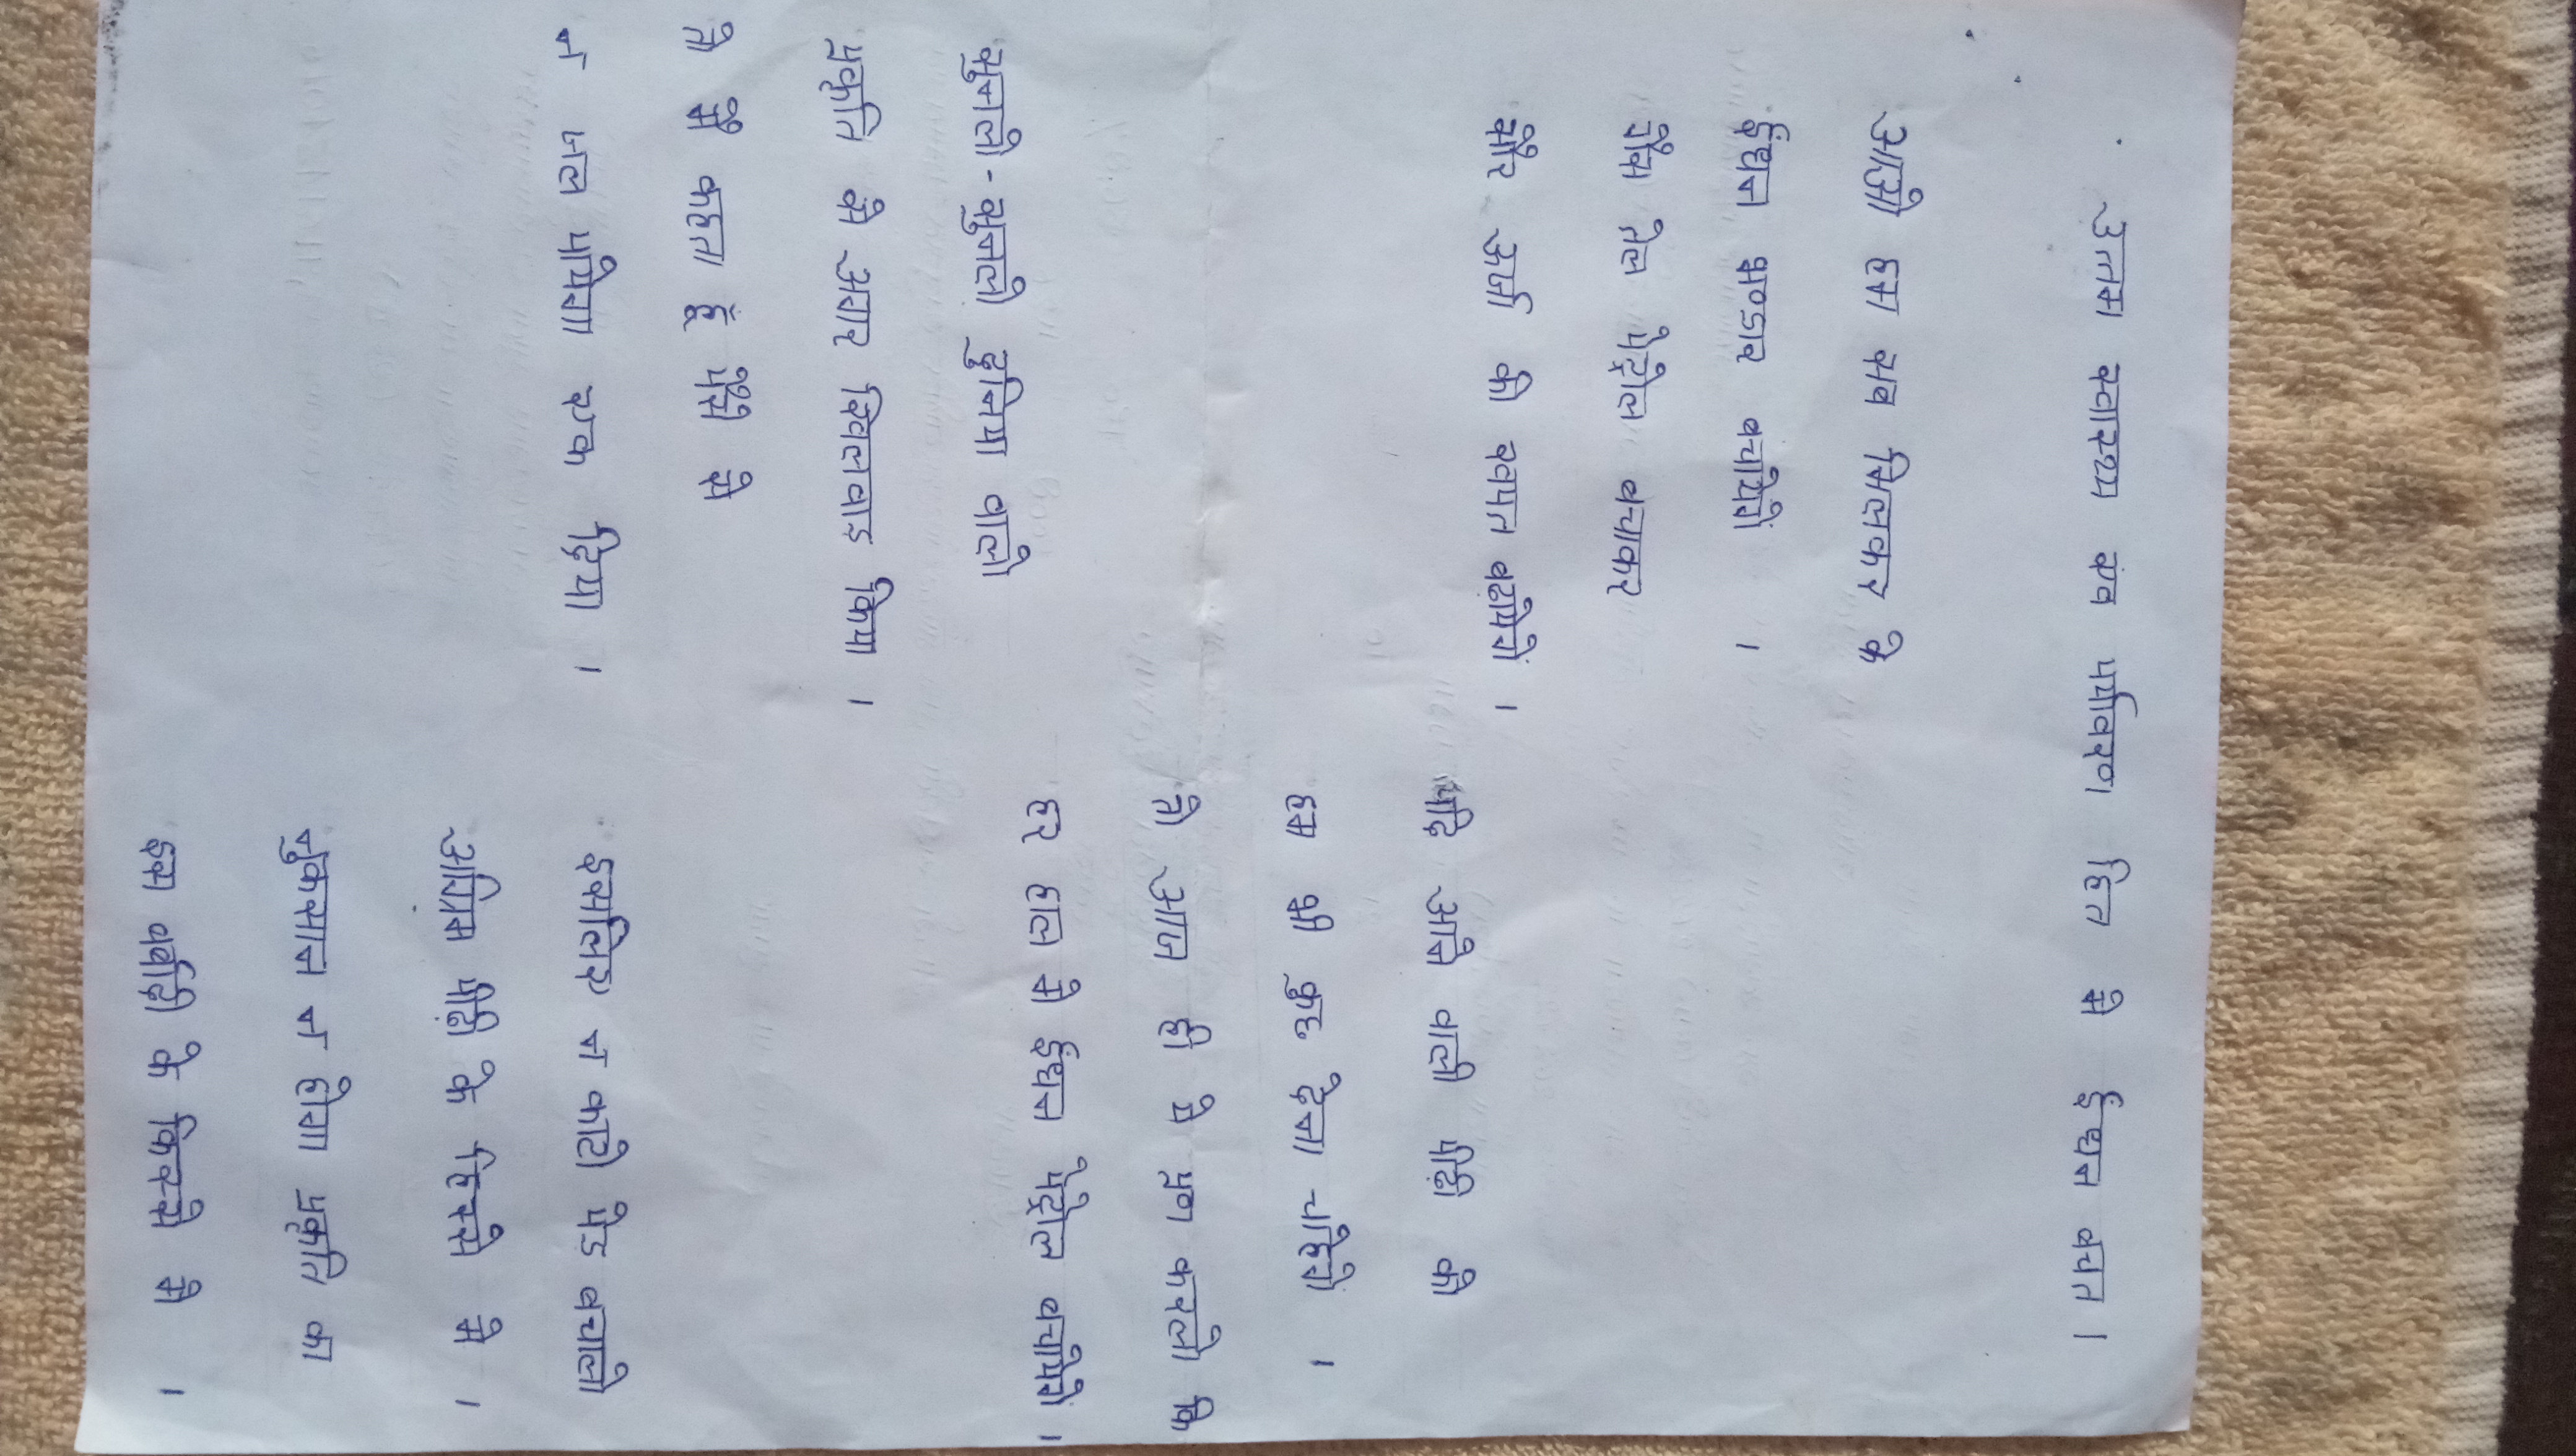 उत्तम स्वास्थ्य एंव पर्यावरण हित मे ईंधन बचत |
आओ हम सब मिलकर के
ईंधन भण्डार बचायेगें ।
गैस तेल पेट्रोल बचाकर
और ऊर्जा की खपत बढ़ायेगें ।
यदि आने वाली पीढ़ी को
हम भी कुछ देना चाहेगें ।
तो आज ही ये प्रण करलो कि
हर हाल मे ईंधन पेट्रोल बचायेगें ।
सुनलो - सुनलो दुनिया वालो
प्रकृति से अगर खिलवाड किया ।
तो मैं कहता हूं पैसे से
न जल पायेगा एक दिया ।
इसलिए न काटो पेड बचालो
अग्रिम पीढ़ी के हिस्से मे ।
नुकसान न होगा प्रकृति का
इस बर्बादी के किस्से मे ।